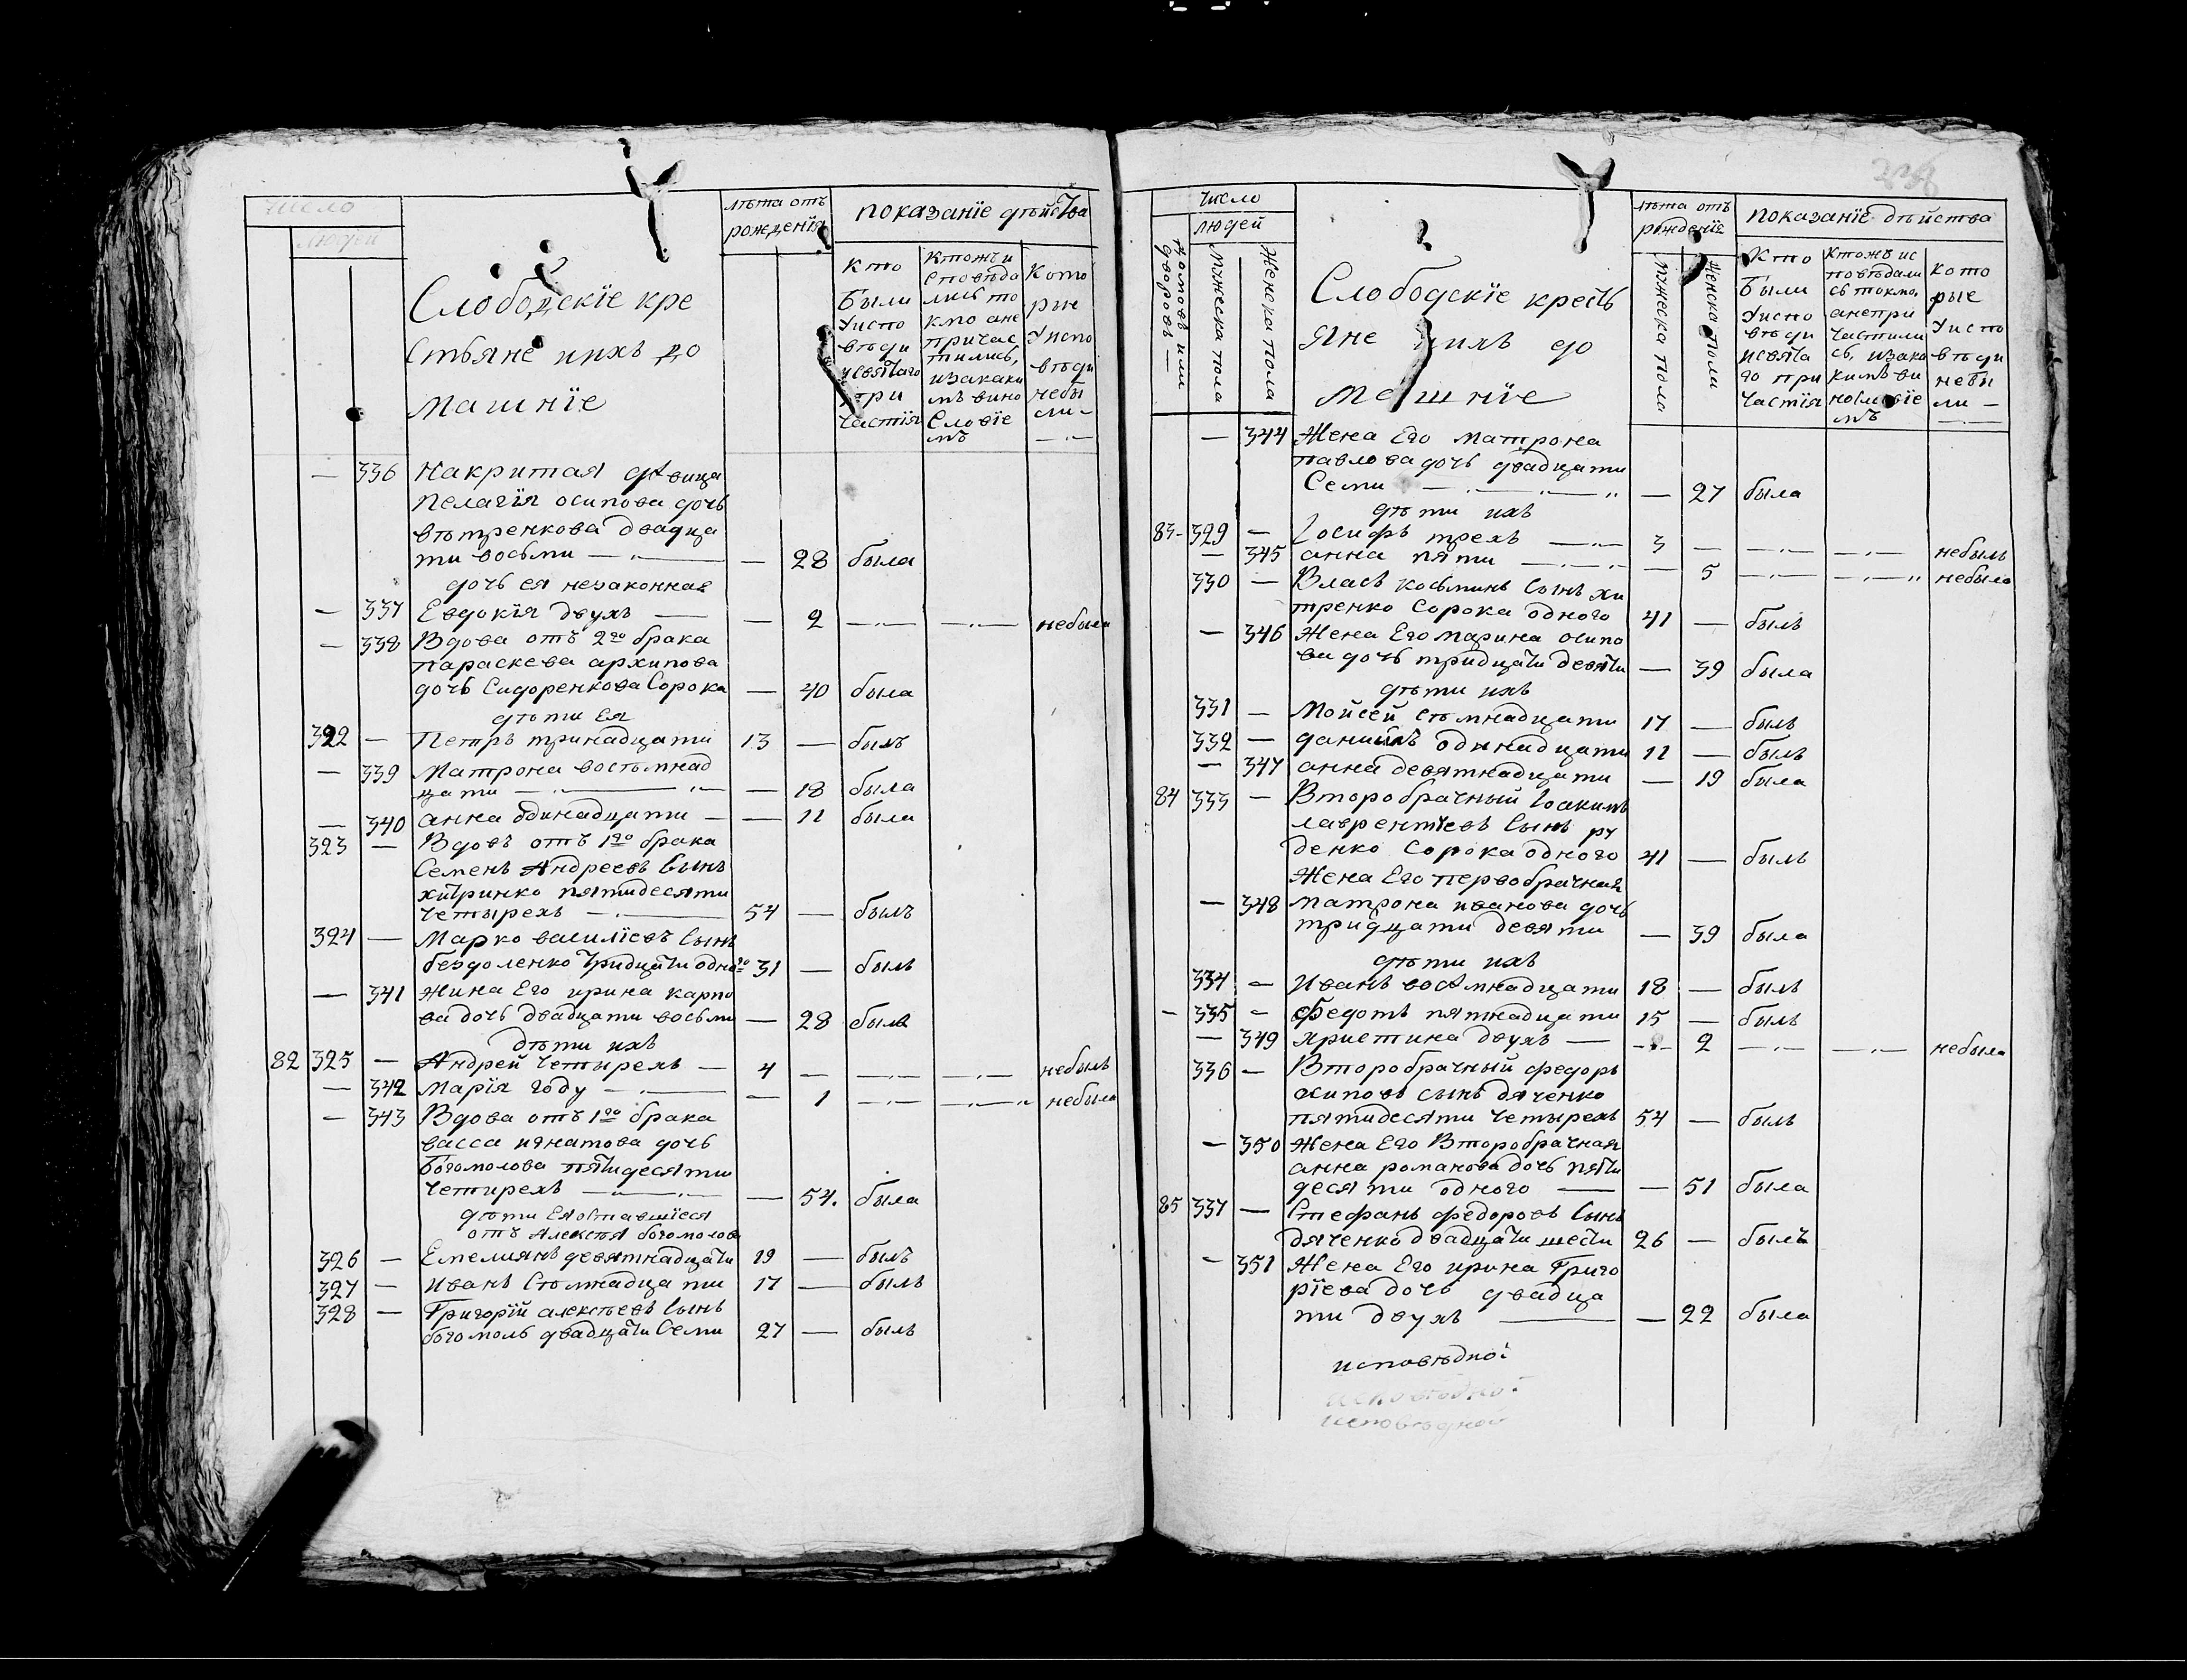 число
людей
лѣта отъ
рожденїя
показанїе дѣйства
Слободскїе кре
стьяне ихъ до
машнїе
Кто
были
уиспо
вѣди
исвятаго
при
частїя
Ктожъ и
сповѣда
лись то
кмо ане
причас
тились,
изакаки
мъ вино
словїе
мъ
Кото
рие
Уиспо
вѣди
небы
ли
— 336 Накритая дѣвица
Пелагїя осипова дочь
вѣтренкова двадца
ти восьми — 28 была
дочь ея незаконная
— 337 Евдокїя двухъ — 2 небыла
— 338 Вдова отъ 2го брака
параскева архипова
дочь Сидоренкова Сорока — 40 была
дѣти Ея
322 — Петръ тринадцати 13 — былъ
— 339 Матрона востьмнад
цати — 18 была
— 340 анна одинадцати — 11 была
323 — Вдовъ отъ 1го брака
Семенъ Андреевъ Сынъ
хитринко пятидесяти
четырехъ 54 — былъ
324 — Марко василїевъ Сынъ
бездоленко тридцати одного 31 — былъ
— 341 жина Его ирина карпо
ва дочь двадцати восьми — 28 была
дѣти ихъ
82 325 — Андрей четырехъ — 4 — небылъ
— 342 Марїя году — 1 небыла
— 343 Вдова отъ 1го брака
васса игнатова дочь
Богомолова пятидесяти
четирехъ — 54. была
дѣти Ея оставшїеся
отъ Алексѣя богомолова
326 — Емелиянъ девятнадцати 19 — былъ
327 — Иванъ Стьмнадцати 17 — былъ
328 — Григорїй алексѣевъ Сынъ
богомолъ двадцати Семи 27 — былъ
число
домовъ или
дворовъ
людей
мужеска пола
Женска пола
Слободскїе кресть
яне ихъ до
машнїе
лѣта отъ
рожденїя
мужеска пола
женска пола
показанїе дѣйства
Кто
были
уиспо
вѣди
исвята
го при
частїя
Ктожъ ис
повѣдали
сь токмо,
анепри
частили
сь, изака
кимъ ви
нословїе
мъ
Кото
рые
Уиспо
вѣди
небы
ли —
— 344 Жена Его матрона
павлова дочь двадцати
Семи — 27 была
дѣти ихъ
83 329 — Iосифъ трехъ 3 — небылъ
— 345 анна пяти — 5 небыла
330 — Власъ косьминъ Сынъ хи
тренко Сорока одного 41 — былъ
— 346 Жена Его марина осипо
ва дочь тридцати девяти — 39 была
дѣти ихъ
331 — Мойсей стьмнадцати 17 — былъ
332 — данїилъ одинадцати 11 — былъ
— 347 анна девятнадцати — 19 была
84 333 — Второбрачный Iоакимъ
лаврентїевъ Сынъ ру
денко Сорока одного 41 — былъ
Жена Его первобрачная
— 348 матрона иванова дочь
тридцати девяти — 39 была
дѣти ихъ
334 — Иванъ восьмнадцати 18 — былъ
— 335 — Федотъ пятнадцати 15 — былъ
— 349 христина двухъ — 2 небыла
336 — Второбрачный федоръ
осиповъ сынъ дяченко
пятидесяти четырехъ 54 — былъ
— 350 Жена Его Второбрачная
анна романова дочь пяти
десяти одного — 51 была
85 337 — Стефанъ федоровъ Сынъ
дяченко двадцати шести 26 — былъ
— 351 Жена Его ирина Григо
рїева дочь двадца
ти двухъ — 22 была
исповѣдной
исповѣдной
исповѣдной